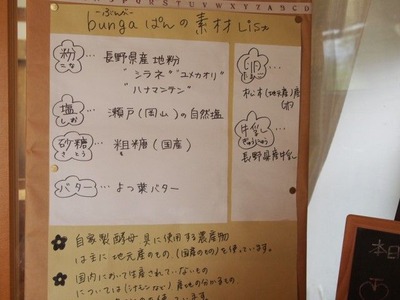 ぶんぶ
bunga ぱんの素材 List
粉 … 長野県産地粉
こな
"シラネ" "ユメカオリ"
"ハナマンテン"
塩 … 瀬戸(岡山)の自然塩
しお
砂糖 … 粗糖 (国産)
さとう
バター … よつ葉バター
卵 …
松本(地元産)産
牛乳 …
ぎゅうにゅう
長野県産牛乳
自家製酵母、具に使用する農産物
は主に地元産のもの、(国産のもの)を使っています。
国内において生産されていないもの
については(シナモンなど)産地の分かるもの
使っています。
本日